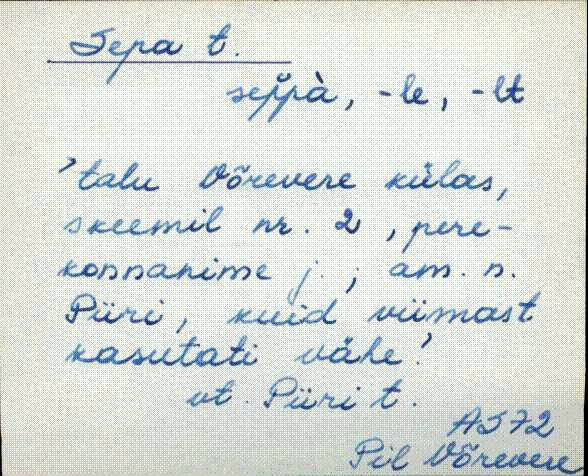 Sepa t.
sep̆pà, -le, -lt
'talu Võrevere külas,
skeemil nr. 2, pere-
konnanime j.; am. n.
Piiri, kuid viimast
kasutati vähe!
vt. Piiri t.
AS 72
Pil Võrevere